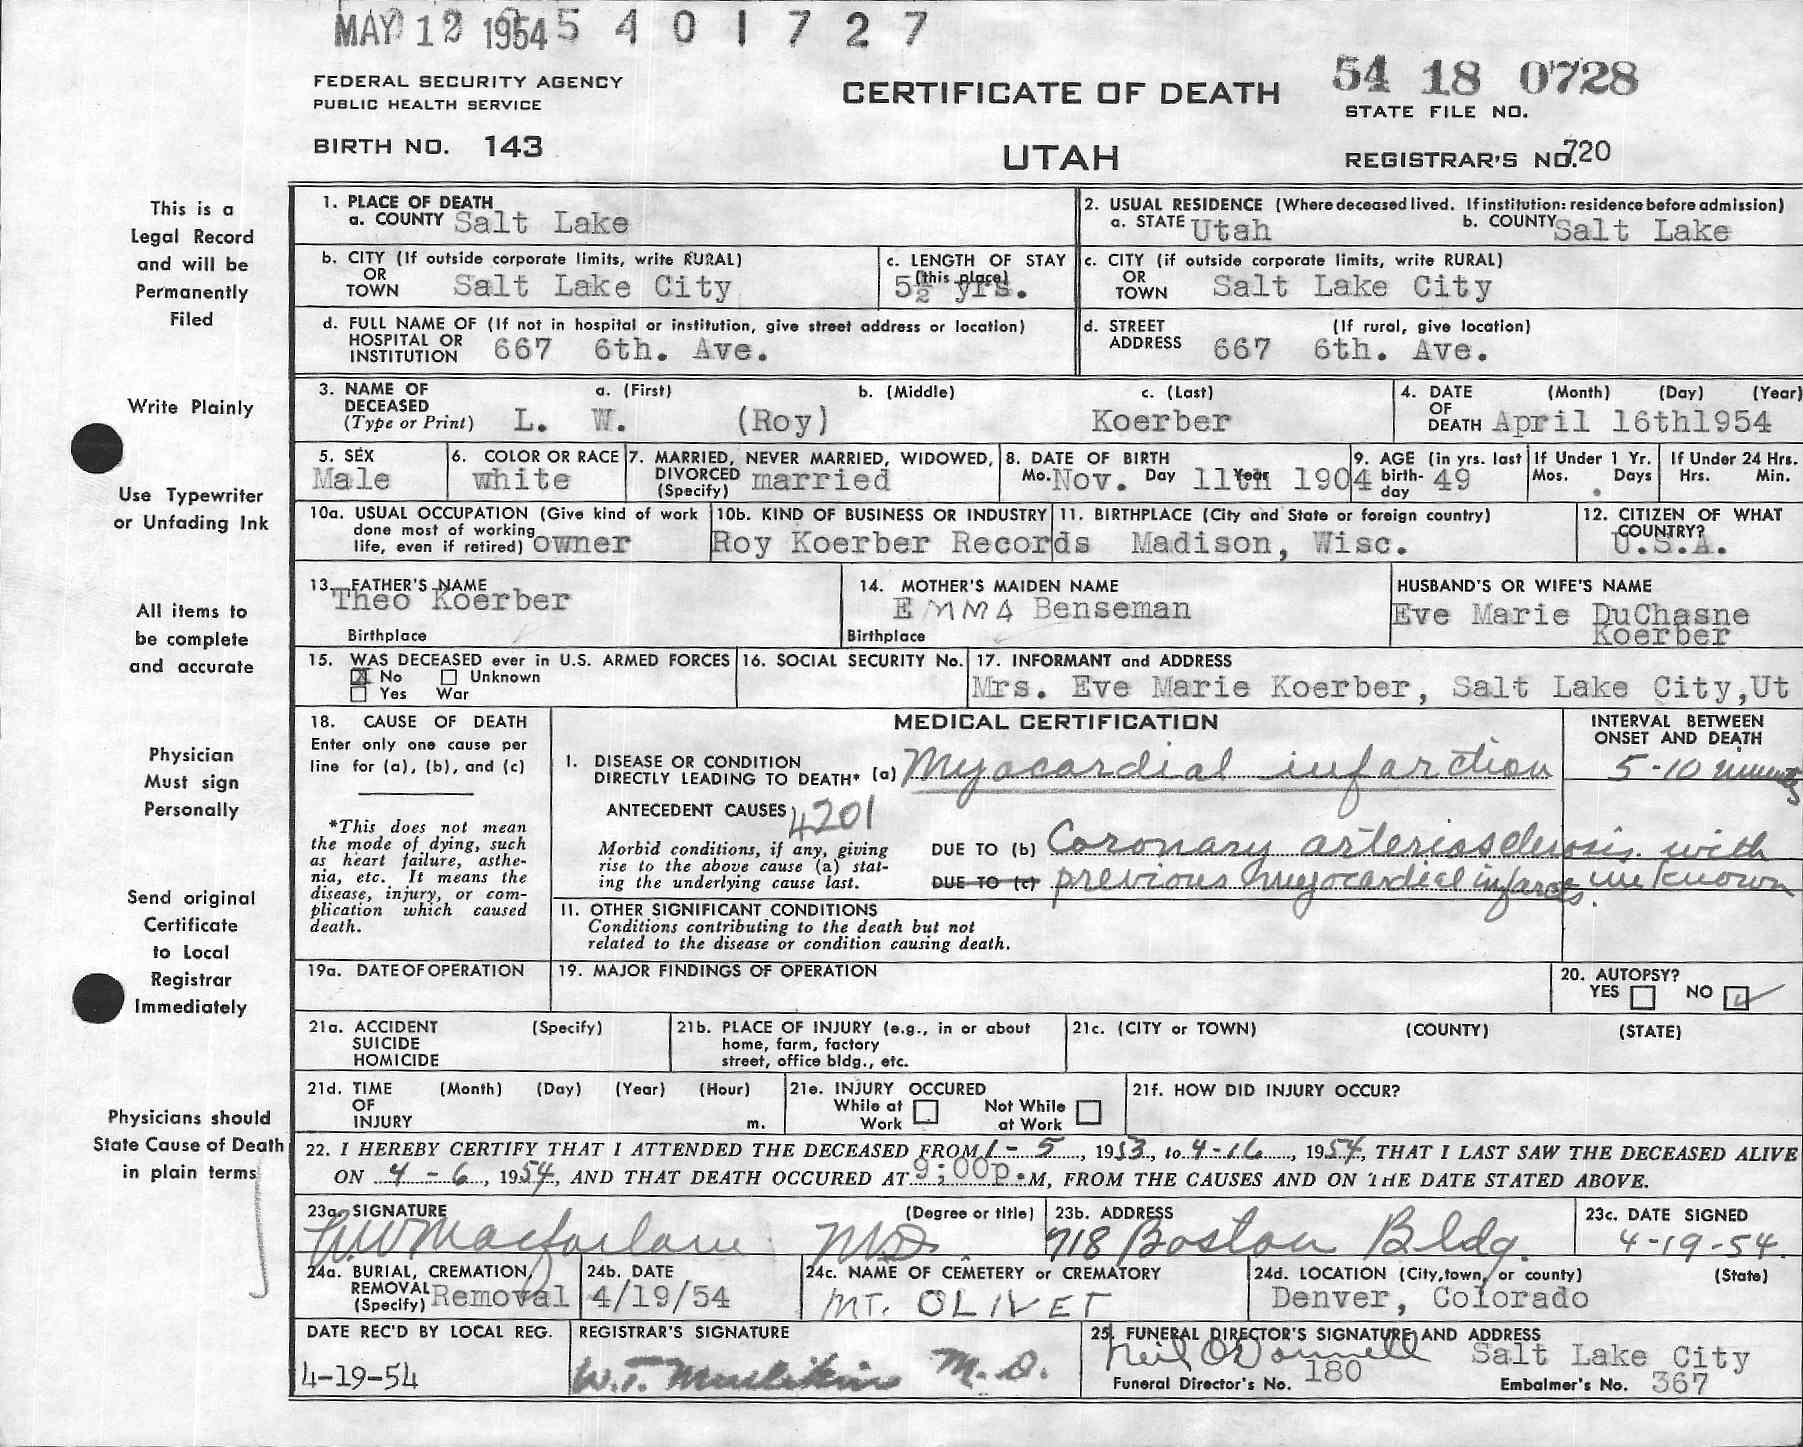 MAY 12 1954 5 4 0 1 7 2 7
FEDERAL SECURITY AGENCY
PUBLIC HEALTH SERVICE
BIRTH NO. 143
CERTIFICATE OF DEATH
UTAH
54 18 0728
STATE FILE NO.
REGISTRAR'S NO. 720
This is a
Legal Record
and will be
Permanently
Filed
Write Plainly
Use Typewriter
or Unfading Ink
All items to
be complete
and accurate
Physician
Must sign
Personally
Send original
Certificate
to Local
Registrar
Immediately
Physicians should
State Cause of Death
in plain terms
1. PLACE OF DEATH
a. COUNTY Salt Lake
2. USUAL RESIDENCE (Where deceased lived. If institution: residence before admission)
a. STATE Utah b. COUNTY Salt Lake
b. CITY (If outside corporate limits, write RURAL)
OR
TOWN Salt Lake City
c. LENGTH OF STAY
(this place)
5½ yrs.
c. CITY (if outside corporate limits, write RURAL)
OR
TOWN Salt Lake City
d. FULL NAME OF (If not in hospital or institution, give street address or location)
HOSPITAL OR
INSTITUTION 667 6th. Ave.
d. STREET (If rural, give location)
ADDRESS 667 6th. Ave.
3. NAME OF a. (First) b. (Middle) c. (Last)
DECEASED
(Type or Print) L. W. (Roy) Koerber
4. DATE (Month) (Day) (Year)
OF
DEATH April 16th1954
5. SEX
Male
6. COLOR OR RACE
white
7. MARRIED, NEVER MARRIED, WIDOWED,
DIVORCED married
(Specify)
8. DATE OF BIRTH
Mo. Nov. Day 11th Year 1904
9. AGE (in yrs. last
birth- 49
day
If Under 1 Yr.
Mos. Days
If Under 24 Hrs.
Hrs. Min.
10a. USUAL OCCUPATION (Give kind of work
done most of working
life, even if retired) owner
10b. KIND OF BUSINESS OR INDUSTRY
Roy Koerber Records
11. BIRTHPLACE (City and State or foreign country)
Madison, Wisc.
12. CITIZEN OF WHAT
COUNTRY?
U.S.A.
13. FATHER'S NAME
Theo Koerber
Birthplace
14. MOTHER'S MAIDEN NAME
EMMA Benseman
Birthplace
HUSBAND'S OR WIFE'S NAME
Eve Marie DuChasne
Koerber
15. WAS DECEASED ever in U.S. ARMED FORCES
X No Unknown
Yes War
16. SOCIAL SECURITY No.
17. INFORMANT and ADDRESS
Mrs. Eve Marie Koerber, Salt Lake City,Ut
18. CAUSE OF DEATH
Enter only one cause per
line for (a), (b), and (c)
*This does not mean
the mode of dying, such
as heart failure, asthe-
nia, etc. It means the
disease, injury, or com-
plication which caused
death.
MEDICAL CERTIFICATION
INTERVAL BETWEEN
ONSET AND DEATH
I. DISEASE OR CONDITION
DIRECTLY LEADING TO DEATH* (a) Myocardial infarction 5-10 minutes
ANTECEDENT CAUSES 4201
Morbid conditions, if any, giving
rise to the above cause (a) stat-
ing the underlying cause last.
DUE TO (b) Coronary arteriosclerosis with
DUE TO (c) previous myocardial infarcts. unknown
II. OTHER SIGNIFICANT CONDITIONS
Conditions contributing to the death but not
related to the disease or condition causing death.
19a. DATE OF OPERATION
19. MAJOR FINDINGS OF OPERATION
20. AUTOPSY?
YES NO ✓
21a. ACCIDENT (Specify)
SUICIDE
HOMICIDE
21b. PLACE OF INJURY (e.g., in or about
home, farm, factory
street, office bldg., etc.
21c. (CITY or TOWN) (COUNTY) (STATE)
21d. TIME (Month) (Day) (Year) (Hour)
OF
INJURY m.
21e. INJURY OCCURED
While at Not While
Work at Work
21f. HOW DID INJURY OCCUR?
22. I HEREBY CERTIFY THAT I ATTENDED THE DECEASED FROM 1-5, 1953, to 4-16, 1954, THAT I LAST SAW THE DECEASED ALIVE
ON 4-6, 1954, AND THAT DEATH OCCURED AT 9:00p.M, FROM THE CAUSES AND ON THE DATE STATED ABOVE.
23a. SIGNATURE (Degree or title)
Macfarlane MD
23b. ADDRESS
718 Boston Bldg.
23c. DATE SIGNED
4-19-54.
24a. BURIAL, CREMATION,
REMOVAL
(Specify) Removal
24b. DATE
4/19/54
24c. NAME OF CEMETERY or CREMATORY
MT. OLIVET
24d. LOCATION (City, town, or county) (State)
Denver, Colorado
DATE REC'D BY LOCAL REG.
4-19-54
REGISTRAR'S SIGNATURE
W.T. M.D.
25. FUNERAL DIRECTOR'S SIGNATURE AND ADDRESS
Neil O'Donnell Salt Lake City
Funeral Director's No. 180 Embalmer's No. 367